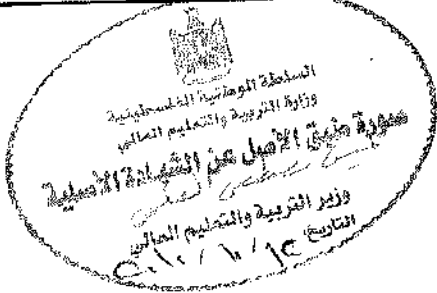 السلطة الوطنية الفلسطينية
وزارة التربية والتعليم العالي
صورة طبق الأصل عن الشهادة الأصلية
وزير التربية والتعليم العالي
التاريخ